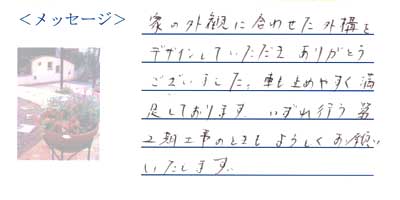 ＜メッセージ＞
家の外観に合わせた外構を
デザインしていただき ありがとう
ございました。車も止めやすく満
足しております。いずれ行う第
2期工事のときも よろしくお願い
いたします。